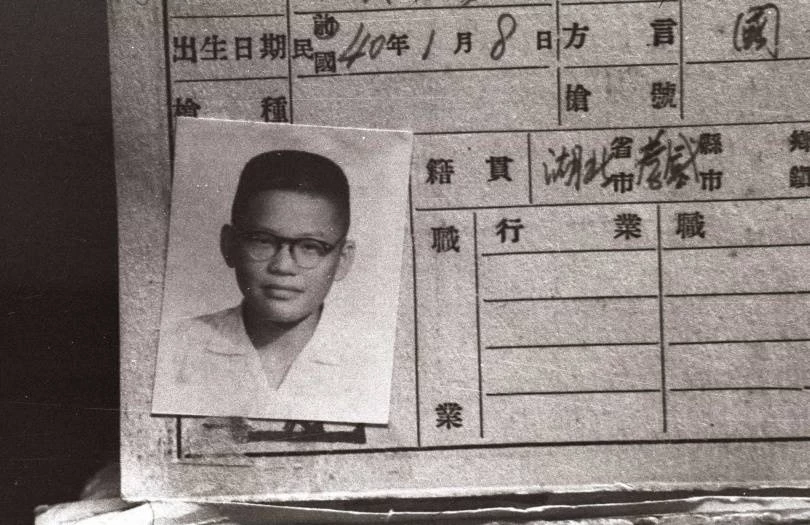 出生日期 民國 40年 1月 8日 方言 國
槍種 槍號
籍貫 湖北省市 孝感縣市 鄉鎮
職業 行業 職